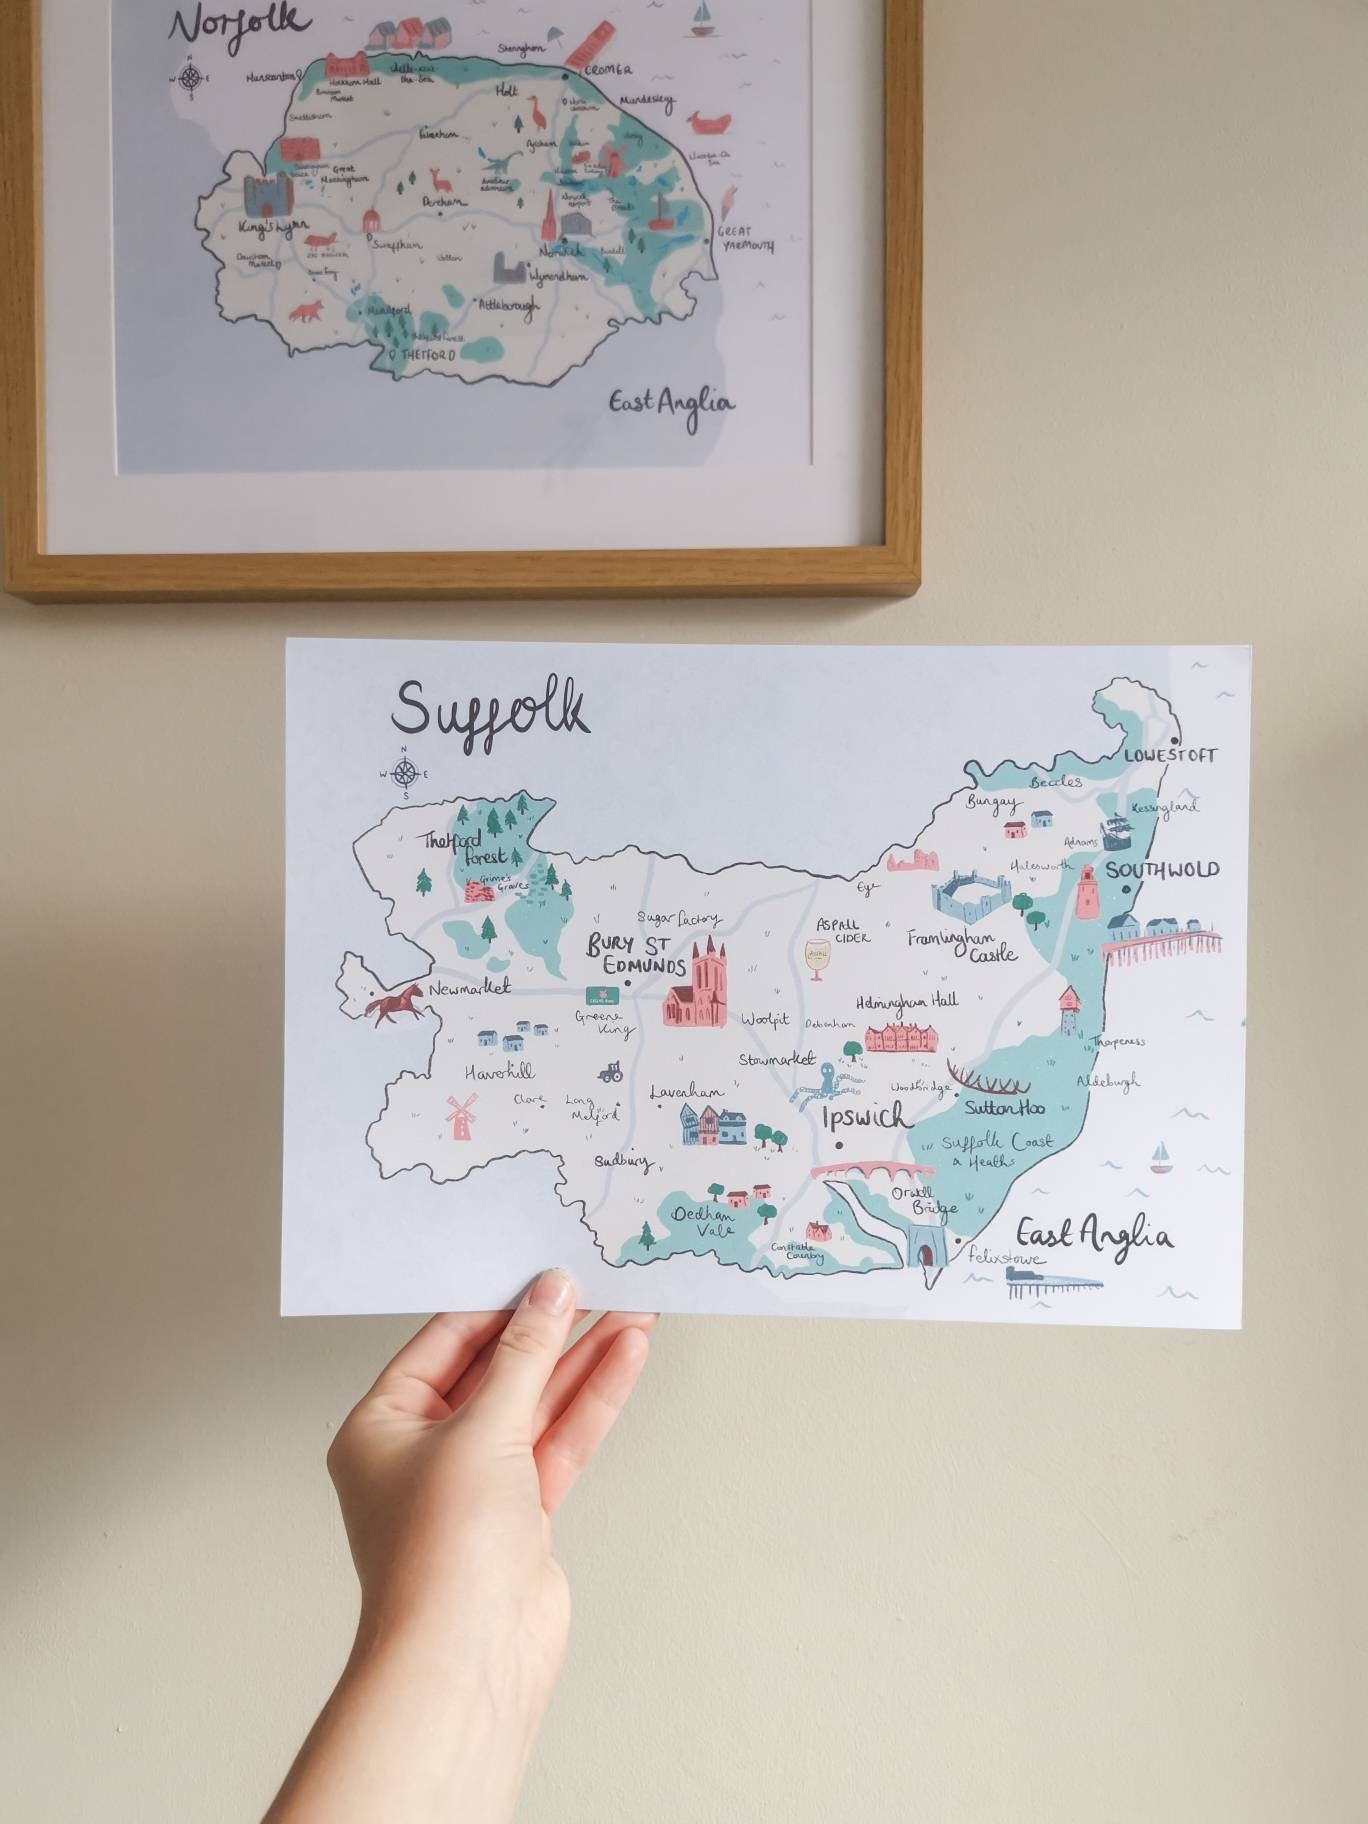 Norfolk
N
W
E
S
Hunstanton
Holkham Hall
Wells-next-
the-Sea
Sheringham
CROMER
Holt
Mundesley
Snettisham
Fakenham
Aylsham
Great
Massingham
King's Lynn
Dereham
Swaffham
Watton
Norwich
The
Broads
GREAT
YARMOUTH
Downham
Market
Wymondham
Attleborough
Mundford
THETFORD
East Anglia
Suffolk
N
W
E
S
LOWESTOFT
Beccles
Bungay
Kessingland
Adnams
Thetford
Forest
Grime's
Graves
Halesworth
SOUTHWOLD
Eye
Sugar Factory
BURY ST
EDMUNDS
ASPALL
CIDER
Framlingham
Castle
Newmarket
Greene
King
Woolpit
Helmingham Hall
Debenham
Thorpeness
Stowmarket
Haverhill
Woodbridge
Aldeburgh
Clare
Long
Melford
Lavenham
Sutton Hoo
Ipswich
Suffolk Coast
& Heaths
Sudbury
Orwell
Bridge
Dedham
Vale
Constable
Country
East Anglia
Felixstowe